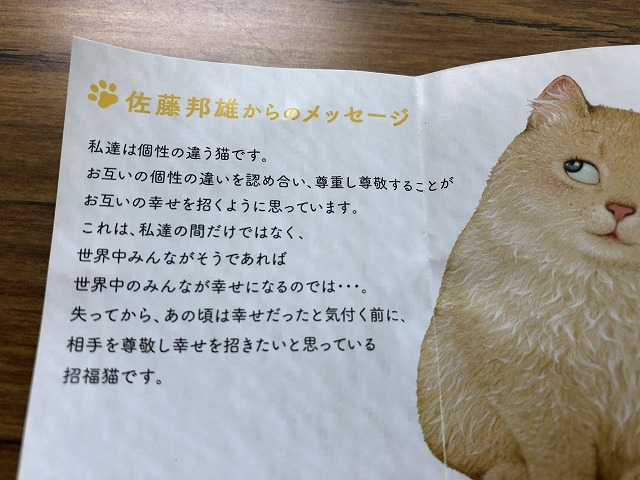 佐藤邦雄からのメッセージ
私達は個性の違う猫です。
お互いの個性の違いを認め合い、尊重し尊敬することが
お互いの幸せを招くように思っています。
これは、私達の間だけではなく、
世界中みんながそうであれば
世界中のみんなが幸せになるのでは・・・。
失ってから、あの頃は幸せだったと気付く前に、
相手を尊敬し幸せを招きたいと思っている
招福猫です。